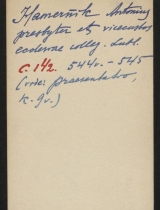 Hamernik Antonius
presbyter et vicecustos
ecclesiae colleg. Lubl.
C. 142. 544v. - 545
(vide: praesentatio,
k. 9v.)